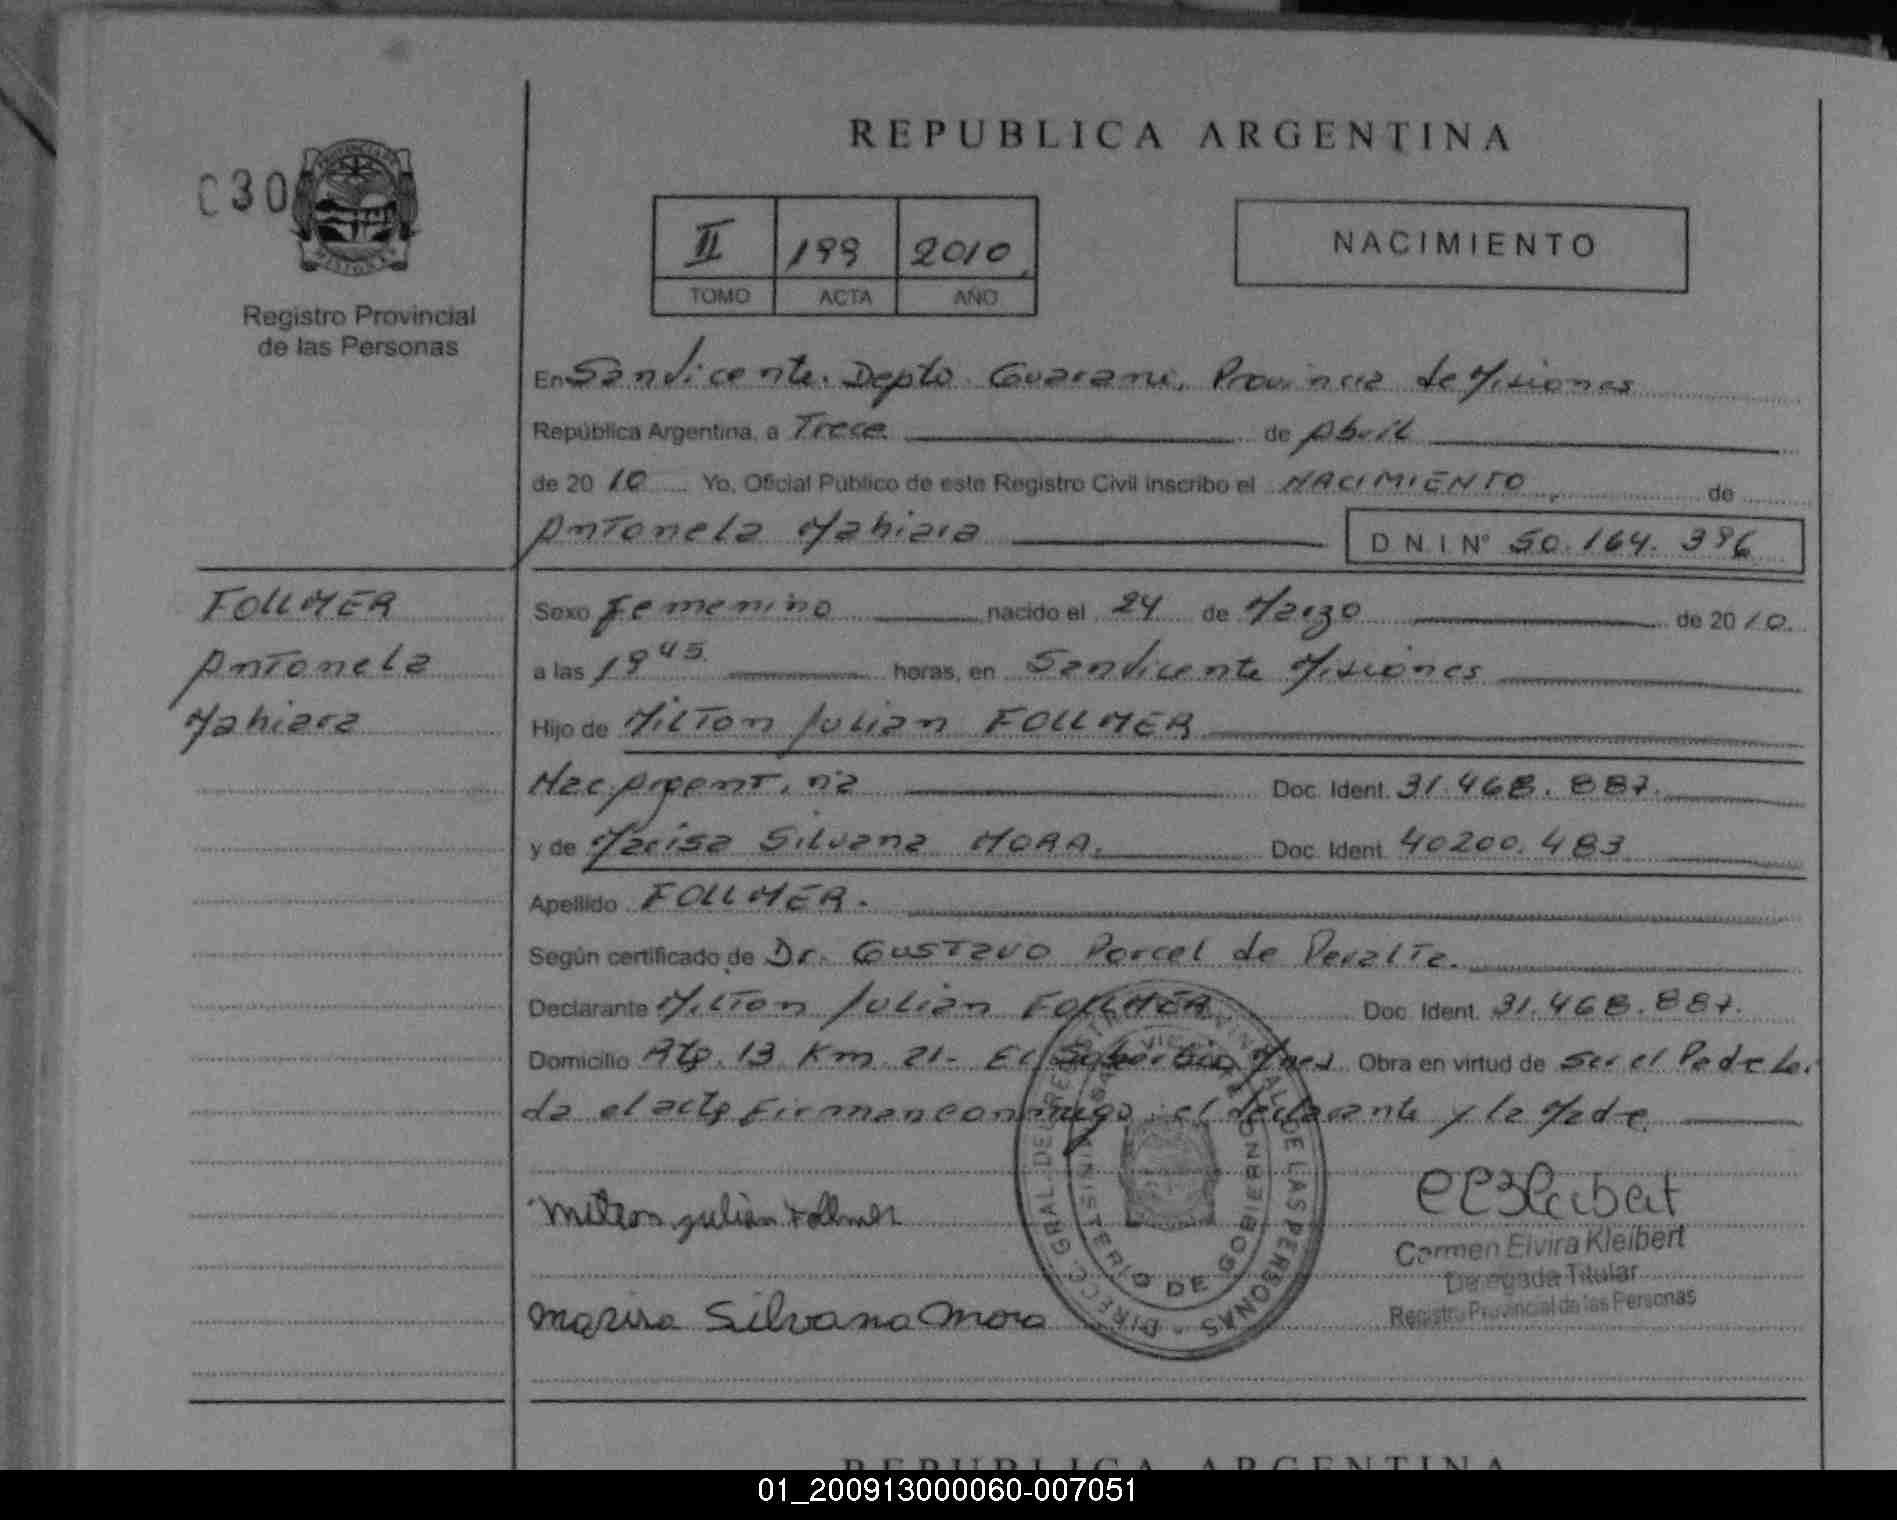 REPUBLICA ARGENTINA
030
PROVINCIA DE MISIONES
Registro Provincial
de las Personas
II 199 2010
TOMO ACTA AÑO
NACIMIENTO
En San Vicente. Depto Guarani, Provincia de Misiones
República Argentina, a Trece de Abril
de 2010 Yo, Oficial Público de este Registro Civil inscribo el NACIMIENTO, de
Antonela Nahiara D N I Nº 50.164.396
FOLLMER
Antonela
Nahiara
Sexo Femenino nacido el 24 de Marzo de 2010.
a las 19 45 horas, en San Vicente Misiones
Hijo de Milton Julian FOLLMER
Nac. Argentina Doc. Ident. 31.468.887.
y de Marisa Silvana MORA. Doc. Ident. 40200.483
Apellido FOLLMER.
Según certificado de Dr. Gustavo Porcel de Peralta.
Declarante Milton Julian FOLLMER Doc. Ident. 31.468.887.
Domicilio Rta. 13 Km 21- El Soberbio Mnes. Obra en virtud de ser el Padre Lei
da el acta Firman conmigo el declarante y la Madre
Milton Julian Follmer
Marisa Silvana Mora
DIRECC. GRAL. DEL REGISTRO PROVINCIAL DE LAS PERSONAS
MINISTERIO DE GOBIERNO
SAN VICENTE
Carmen Elvira Kleibert
Delegada Titular
Registro Provincial de las Personas
REPUBLICA ARGENTINA
01_200913000060-007051